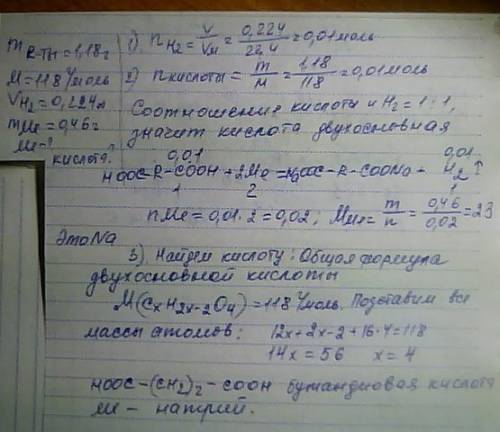 m к-ты = 1,18г
M = 118 г/моль
V H2 = 0,224л
m Me = 0,46г
Me - ?
кислота ?
1). n H2 = V/Vм = 0,224/22,4 = 0,01 моль
2) n кислоты = m/M = 1,18/118 = 0,01 моль
Соотношение кислоты и H2 = 1:1,
значит кислота двухосновная
0,01 0,01
HOOC-R-COOH + 2Me = NaOOC-R-COONa + H2↑
1 2 1
nMe = 0,01·2 = 0,02; MMe = m/n = 0,46/0,02 = 23
Это Na
3). Найдем кислоту: Общая формула
двухосновной кислоты
M(CxH2x-2O4) = 118 г/моль. Подставим все
массы атомов: 12x+2x-2+16·4=118
14x = 56 x = 4
HOOC-(CH2)2-COOH бутандиовая кислота
Me - натрий.